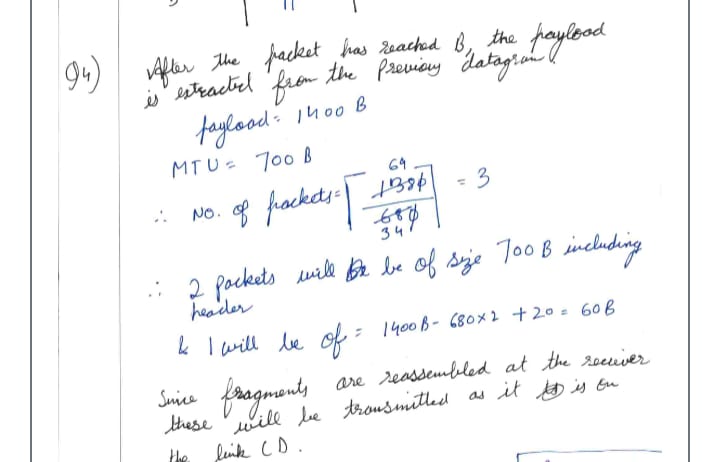 Q4) After the packet has reached B, the payload
is extracted from the previous datagram.
payload = 1400 B
MTU = 700 B
69
∴ No. of packets = ⌈ 1380 ⌉ = 3
680
34
∴ 2 packets will be be of size 700 B including
header
& 1 will be of = 1400 B - 680 × 2 + 20 = 60 B
Since fragments are reassembled at the receiver
these will be transmitted as it is on
the link CD.